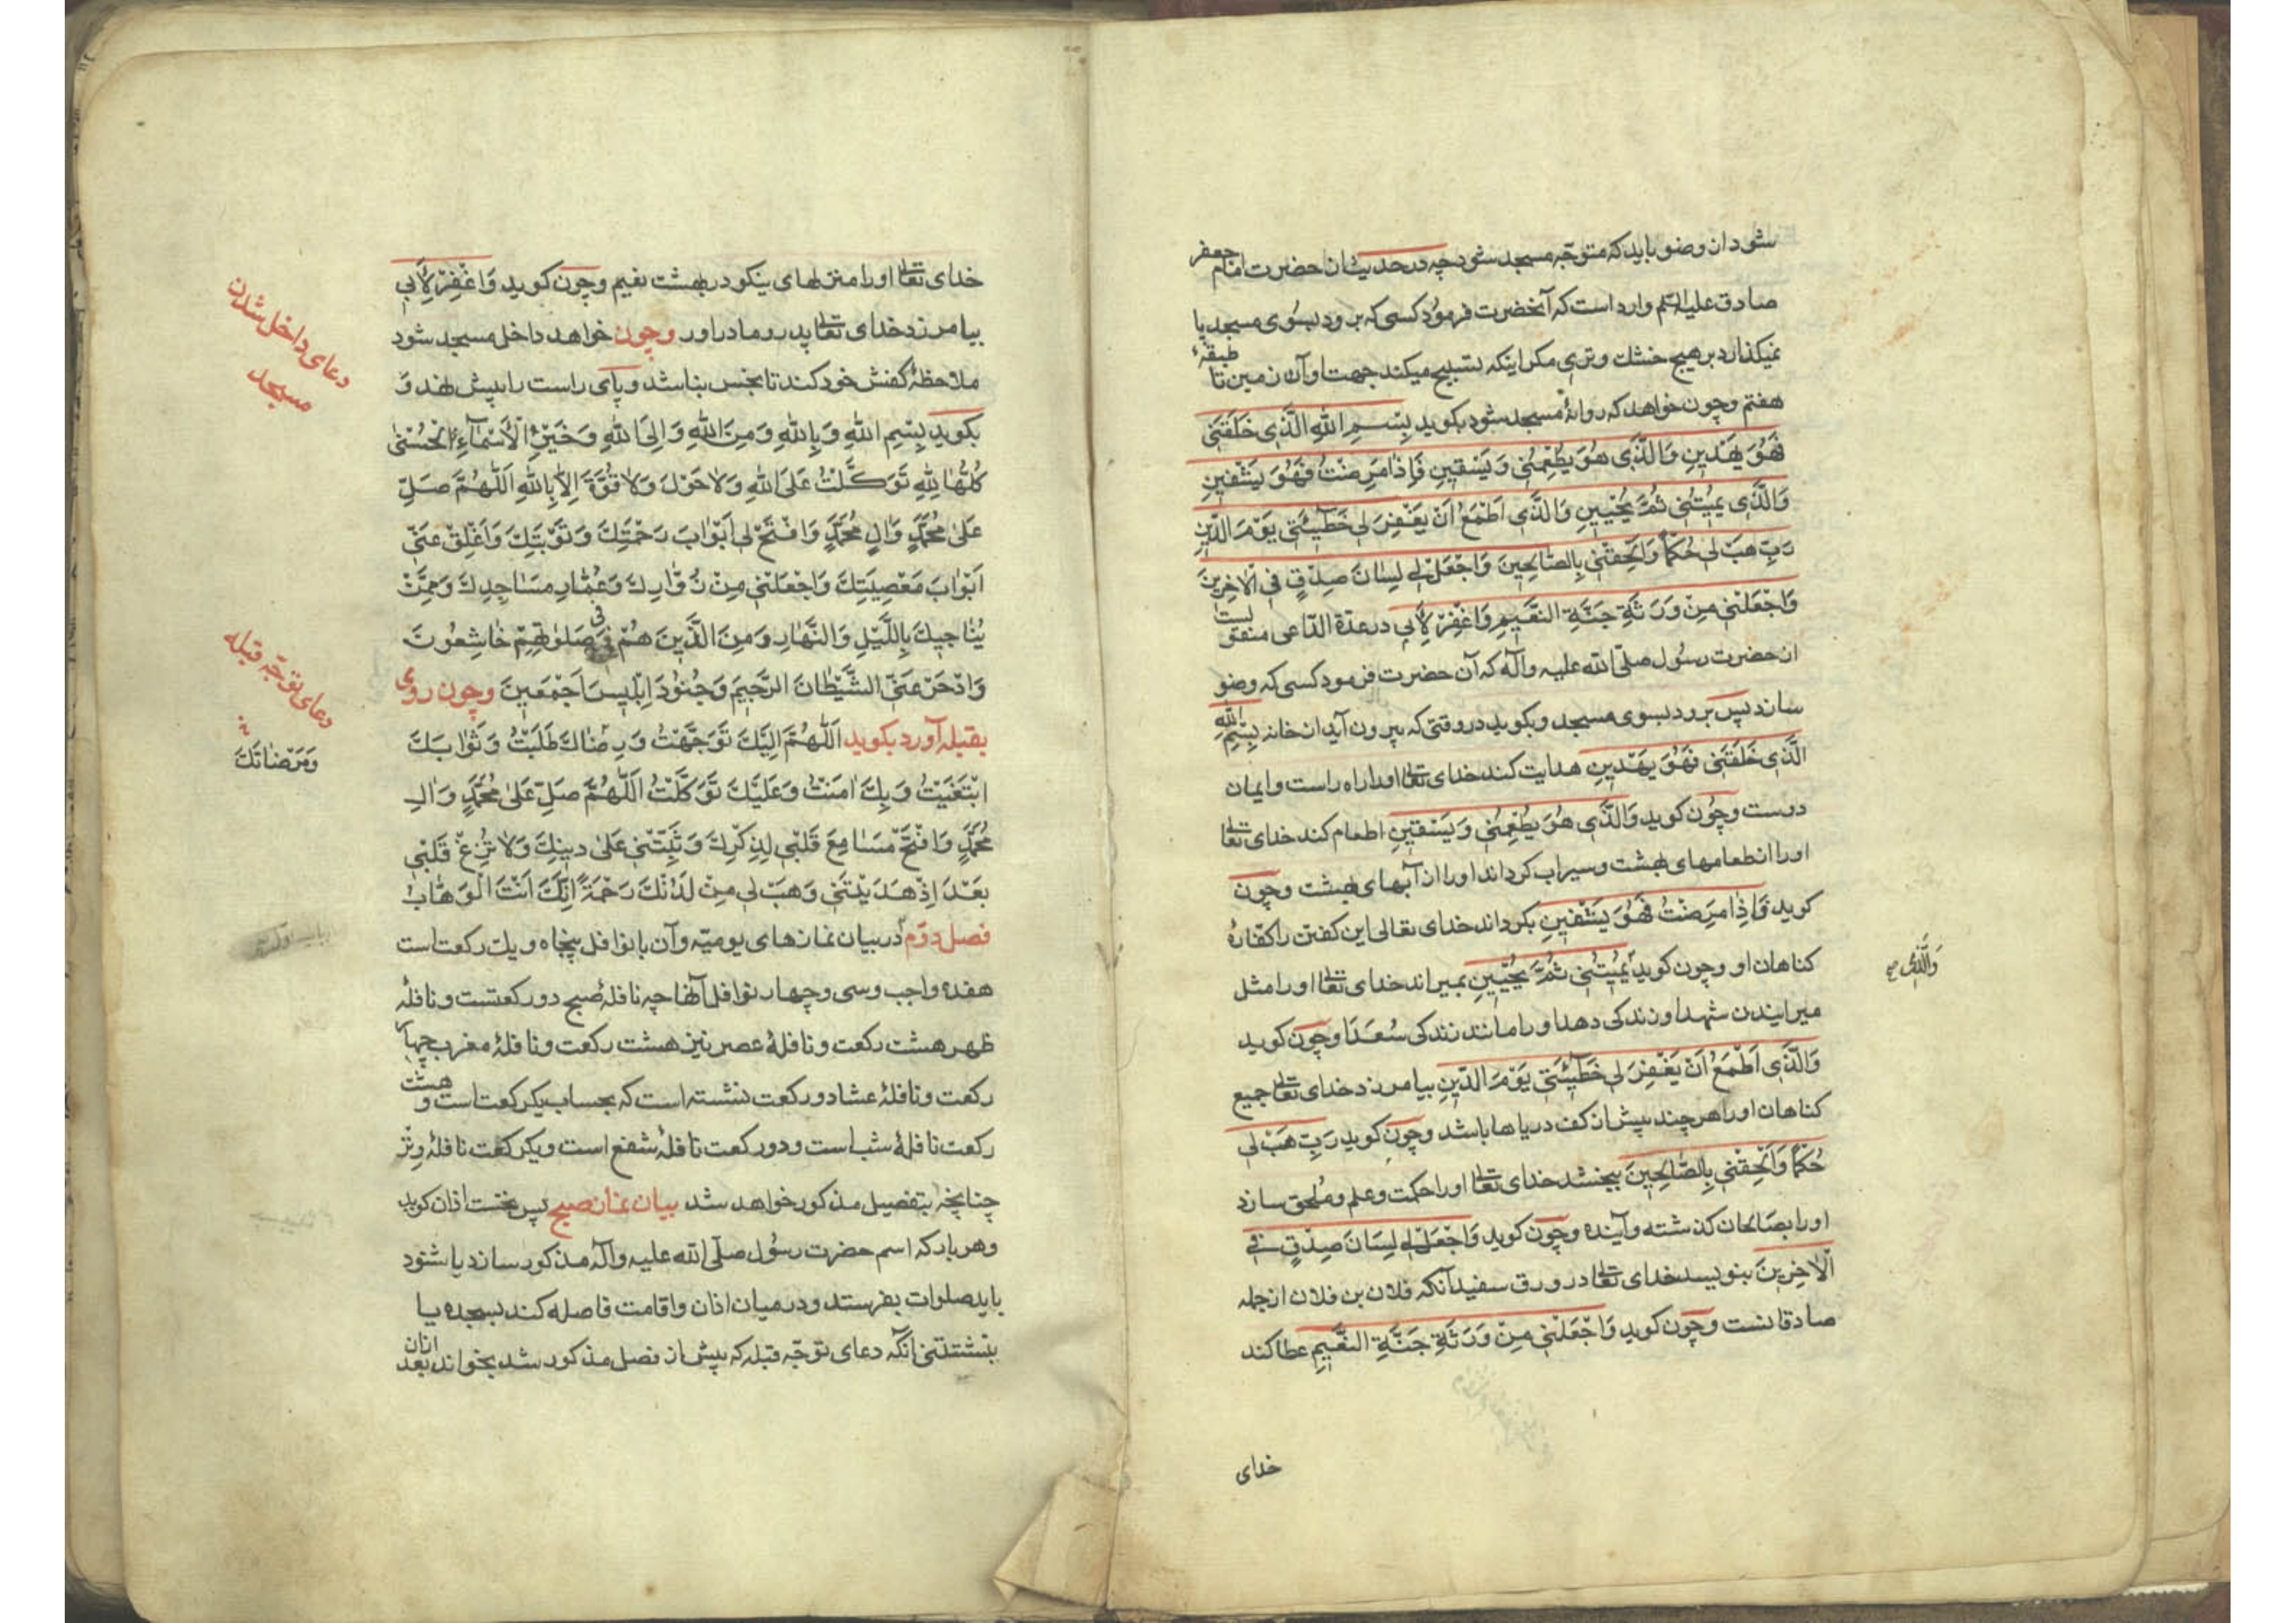 شود ان وضو باید که متوجّه مسجد شود چه در حدیثان حضرت امام جعفر
صادق علیه السّلم وارد است که آنحضرت فرمود کسی که برود بسوی مسجد پا
نمیکذارد بر هیچ خشک و تری مکر اینکه تسبیح میکند جهت او آن زمین تا طبقهٔ
هفتم وچون خواهد که روانهٔ مسجد شود بکوید بِسْمِ اللهِ الَّذِی خَلَقَنِی
فَهُوَ یَهْدِینِ وَالَّذِی هُوَ یُطْعِمُنِی وَیَسْقِینِ فَاِذٰا مَرِضْتُ فَهُوَ یَشْفِینِ
وَالَّذِی یُمِیتُنِی ثُمَّ یُحْیِینِ وَالَّذِی اَطْمَعُ اَنْ یَغْفِرَ لِی خَطِٓیئَتِی یَوْمَ الدِّینِ
رَبِّ هَبْ لِی حُکْمًا وَاَلْحِقْنِی بِالصّٰالِحِینَ وَاجْعَلْ لِی لِسٰانَ صِدْقٍ فِی الْاٰخِرِینَ
وَاجْعَلْنِی مِنْ وَرَثَةِ جَنَّةِ النَّعِیمِ وَاغْفِرْ لِاَبِی در عدّة الدّاعی منقولست
ان حضرت رسُول صلّی الله علیه وآله که آن حضرت فرمود کسی که وضو
سازد پس برود بسوی مسجد وبکوید در وقتی که بیرون آید ان خانه بِسْمِ اللهِ
الَّذِی خَلَقَنِی فَهُوَ یَهْدِینِ هدایت کند خدای تعالی او را براه راست وایمان
درست وچون کوید وَالَّذِی هُوَ یُطْعِمُنِی وَیَسْقِینِ اطعام کند خدای تعالی
او را ان طعامهای بهشت وسیراب کرداند او را ان آبهای بهشت وچون
کوید وَاِذٰا مَرِضْتُ فَهُوَ یَشْفِینِ بکرداند خدای تعالی این کفتن را کفّارهٔ
کناهان او وچون کوید یُمِیتُنِی ثُمَّ یُحْیِینِ بمیراند خدای تعالی او را مثل
وَالَّذِی صح
میرانیدن شهدا وزندکی دهد او را مانند زندکی سُعَدَا وچون کوید
وَالَّذِی اَطْمَعُ اَنْ یَغْفِرَ لِی خَطِٓیئَتِی یَوْمَ الدِّینِ بیامرزد خدای تعالی جمیع
کناهان او را هر چند بیش ان کف دریاها باشد وچون کوید رَبِّ هَبْ لِی
حُکْمًا وَاَلْحِقْنِی بِالصّٰالِحِینَ ببخشد خدای تعالی او را حکمت وعلم ومُلحق سازد
او را بصالحان کذشته وآینده وچون کوید وَاجْعَلْ لِی لِسَانَ صِدْقٍ فِی
الْاٰخِرِینَ بنویسد خدای تعالی در ورق سفید آنکه فلان بن فلان ان جمله
صادقانست وچون کوید وَاجْعَلْنِی مِنْ وَرَثَةِ جَنَّةِ النَّعِیمِ عطا کند
خدای
خدای تعالی او را منزلهای نیکو در بهشت نعیم وچون کوید وَاغْفِرْ لِاَبِی
بیامرزد خدای تعالی پدر ومادر اور وچون خواهد داخل مسجد شود
دعای داخل شدن
مسجد
ملاحظهٔ کفش خود کند تا نجس نباشد وپای راست را پیش نهد وَ
بکوید بِسْمِ اللهِ وَبِاللهِ وَمِنَ اللهِ وَاِلَی اللهِ وَخَیْرُ الْاَسْمٰٓاءِ الْحُسْنیٰ
کُلُّهٰا لِلّٰهِ تَوَکَّلْتُ عَلَی اللهِ وَلٰا حَوْلَ وَلٰا قُوَّةَ اِلّٰا بِاللهِ اَللّٰهُمَّ صَلِّ
عَلیٰ مُحَمَّدٍ وَاٰلِ مُحَمَّدٍ وَافْتَحْ لِی اَبْوٰابَ رَحْمَتِكَ وَتَوْبَتِكَ وَاَغْلِقْ عَنِّی
اَبْوٰابَ مَعْصِیَتِكَ وَاجْعَلْنِی مِنْ زُوّٰارِكَ وَعُمّٰارِ مَسٰاجِدِكَ وَمِمَّنْ
یُنٰاجِیكَ بِاللَّیْلِ وَالنَّهٰارِ وَمِنَ الَّذِینَ هُمْ فِی صَلٰوتِهِمْ خٰاشِعُونَ
وَادْحَرْ عَنِّی الشَّیْطٰانَ الرَّجِیمَ وَجُنُودَ اِبْلِیسَ اَجْمَعِینَ وچون روی
دعای توجّه قبله
بقبله آورد بکوید اَللّٰهُمَّ اِلَیْكَ تَوَجَّهْتُ وَرِضٰاكَ طَلَبْتُ وَثَوٰابَكَ
وَمَرْضٰاتَكَ
ابْتَغَیْتُ وَبِكَ اٰمَنْتُ وَعَلَیْكَ تَوَکَّلْتُ اَللّٰهُمَّ صَلِّ عَلیٰ مُحَمَّدٍ وَاٰلِ
مُحَمَّدٍ وَافْتَحْ مَسٰامِعَ قَلْبِی لِذِکْرِكَ وَثَبِّتْنِی عَلیٰ دِینِكَ وَلٰا تُزِغْ قَلْبِی
بَعْدَ اِذْ هَدَیْتَنِی وَهَبْ لِی مِنْ لَدُنْكَ رَحْمَةً اِنَّكَ اَنْتَ الْوَهّٰابُ
فصل دوّم در بیان نمازهای یومیّه وآن با نوافل پنجاه ویك رکعت است
هفده واجب وسی وچهار نوافل آنها چه نافلهٔ صبح دو رکعتست ونافلهٔ
ظهر هشت رکعت ونافلهٔ عصر نیز هشت رکعت ونافلهٔ مغرب چهار
رکعت ونافلهٔ عشا دو رکعت نشسته است که بحساب یکرکعت است وهشت
رکعت نافلهٔ شب است ودو رکعت نافلهٔ شفع است ویکرکعت نافلهٔ وِتْر
چنانچه بتفصیل مذکور خواهد شد بیان نماز صبح پس نخست اذان کوید
وهر بار که اسم حضرت رسُول صلّی الله علیه وآله مذکور سازد یا شنود
باید صلوات بفرستد ودر میان اذان واقامت فاصله کند بسجده یا
بنشستنی آنکه دعای توجّه قبله که پیش از فصل مذکور شد بخواند بعد ازان